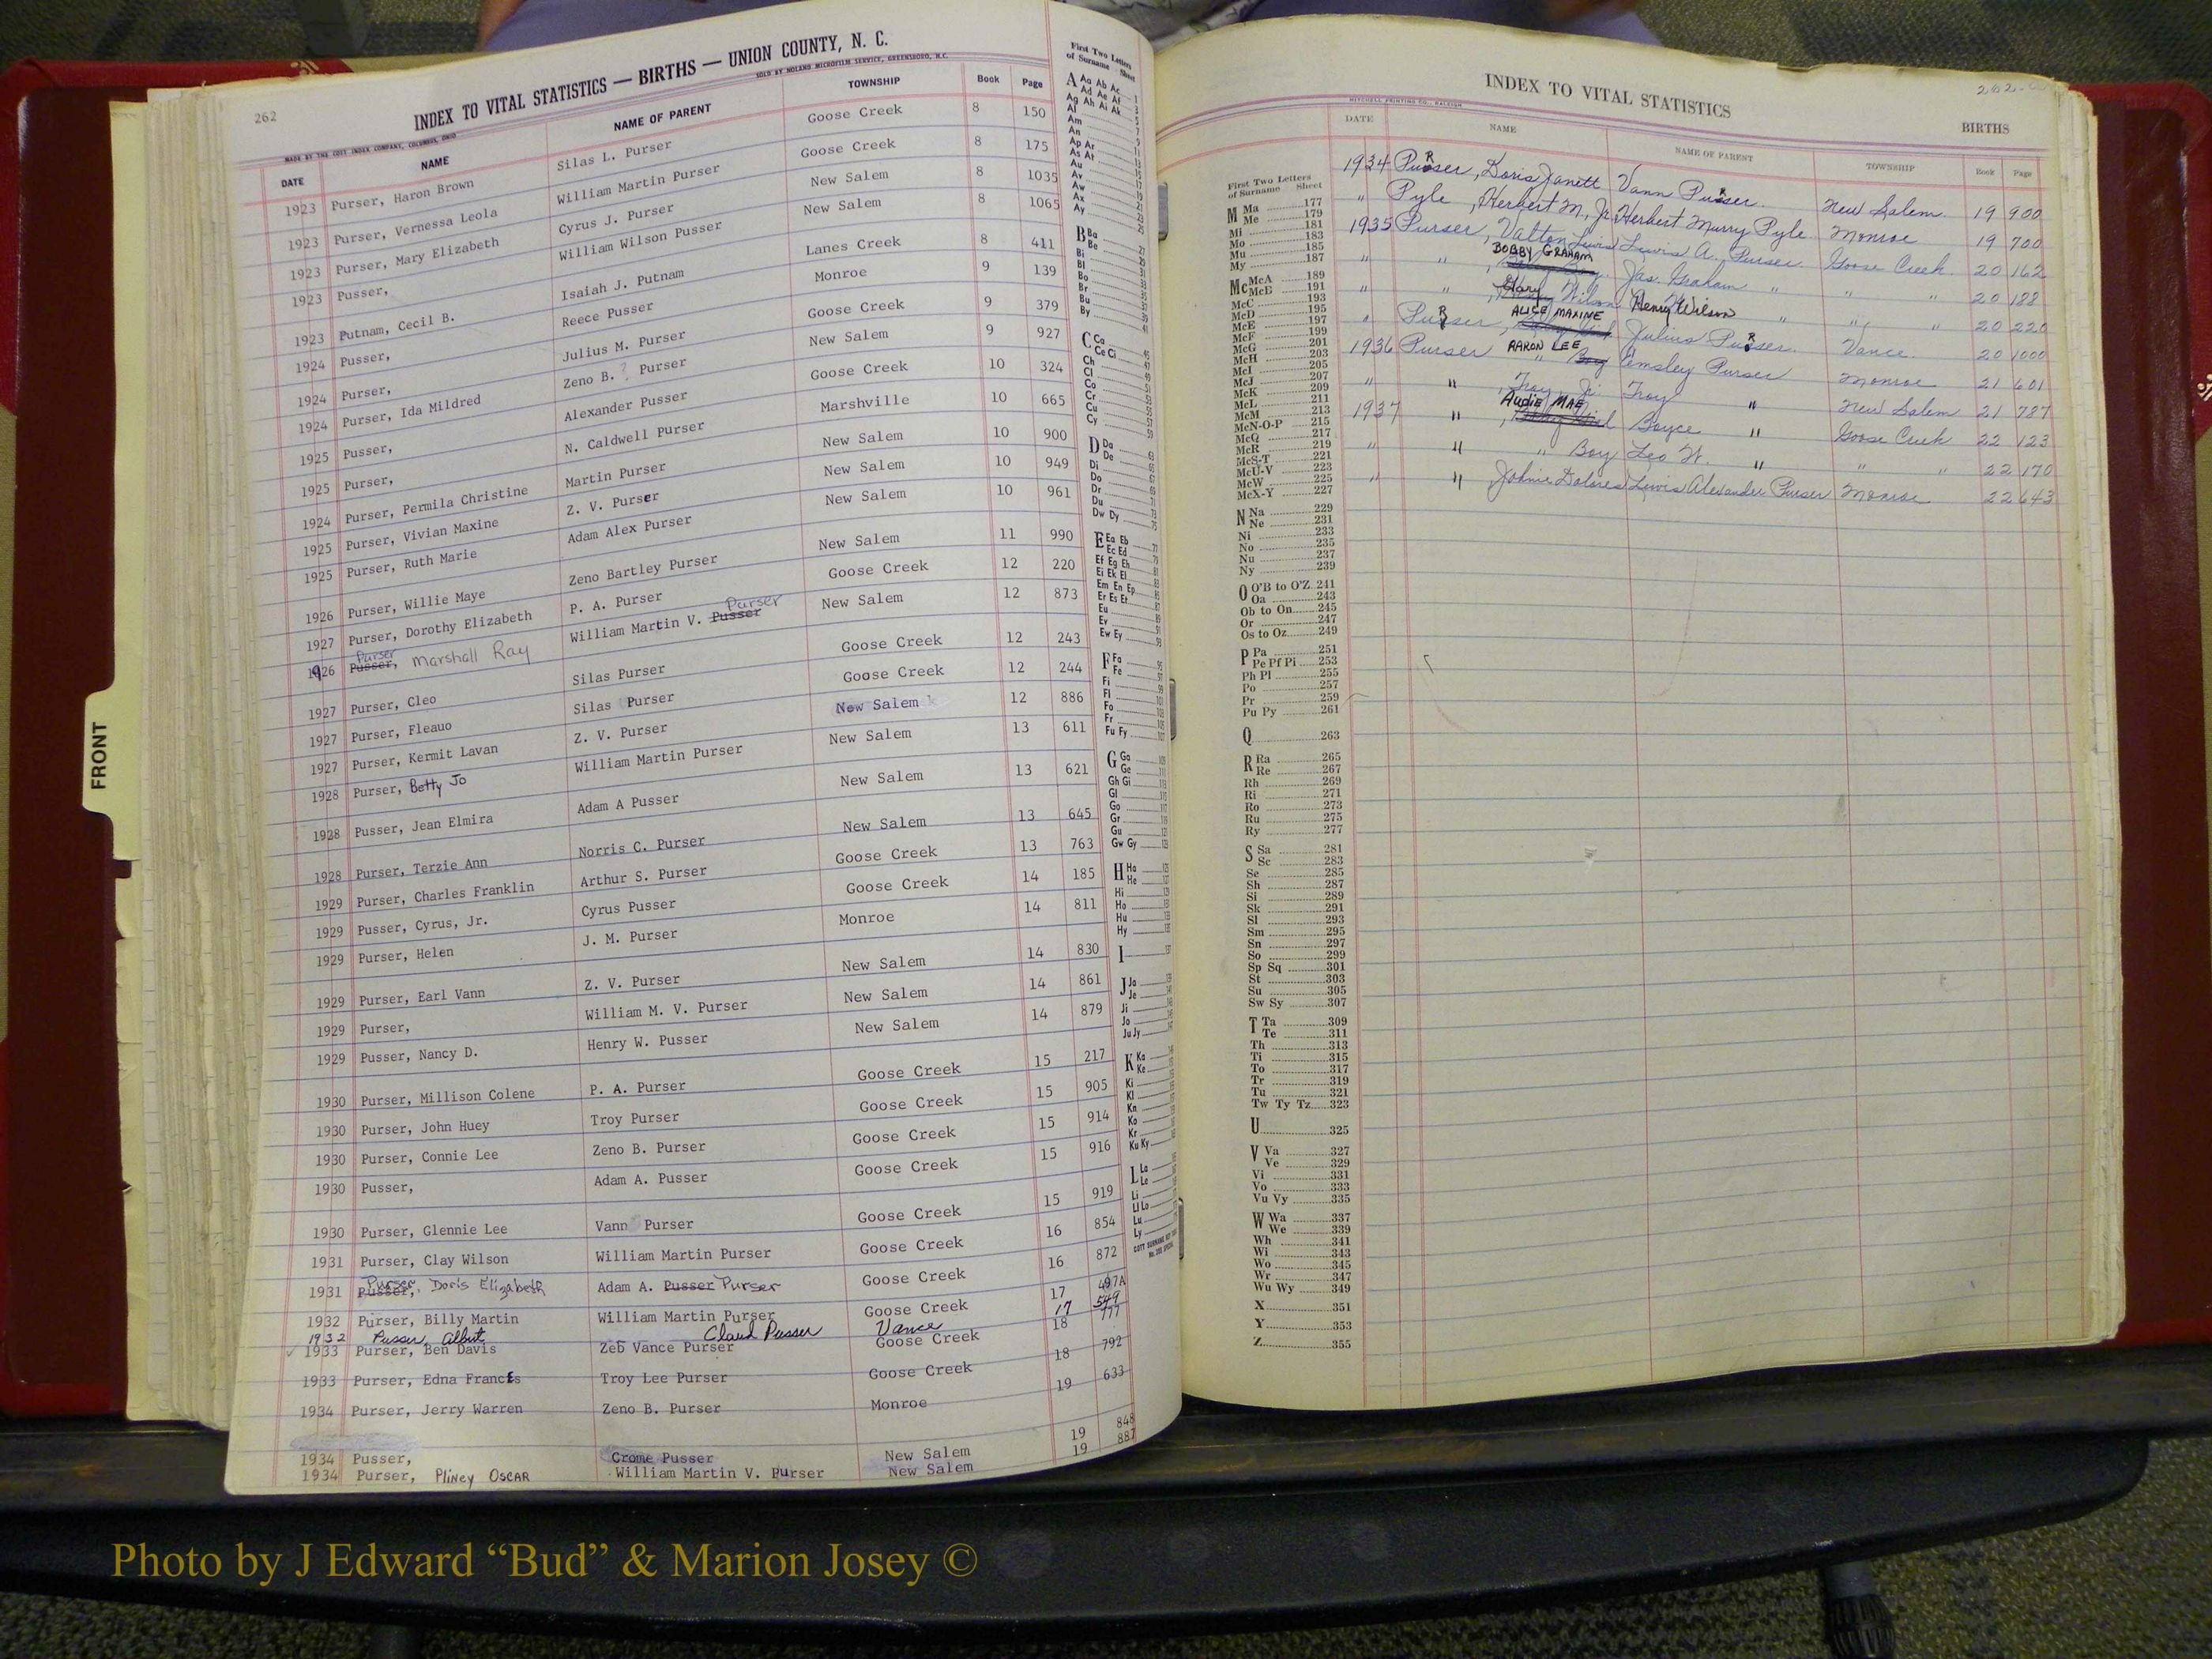 262
INDEX TO VITAL STATISTICS — BIRTHS — UNION COUNTY, N. C.
SOLD BY NOLAND MICROFILM SERVICE, GREENSBORO, N.C.
MADE BY THE COTT INDEX COMPANY, COLUMBUS, OHIO
DATE NAME NAME OF PARENT TOWNSHIP Book Page
1923 Purser, Haron Brown Silas L. Purser Goose Creek 8 150
1923 Purser, Vernessa Leola William Martin Purser Goose Creek 8 175
1923 Purser, Mary Elizabeth Cyrus J. Purser New Salem 8 1035
1923 Pusser, William Wilson Pusser New Salem 8 1065
1923 Putnam, Cecil B. Isaiah J. Putnam Lanes Creek 8 411
1924 Pusser, Reece Pusser Monroe 9 139
1924 Purser, Julius M. Purser Goose Creek 9 379
1924 Purser, Ida Mildred Zeno B. Purser New Salem 9 927
1925 Pusser, Alexander Pusser Goose Creek 10 324
1925 Purser, N. Caldwell Purser Marshville 10 665
1924 Purser, Permila Christine Martin Purser New Salem 10 900
1925 Purser, Vivian Maxine Z. V. Purser New Salem 10 949
1925 Purser, Ruth Marie Adam Alex Purser New Salem 10 961
1926 Purser, Willie Maye Zeno Bartley Purser New Salem 11 990
1927 Purser, Dorothy Elizabeth P. A. Purser Goose Creek 12 220
1926 Pusser, Purser Marshall Ray William Martin V. Pusser Purser New Salem 12 873
1927 Purser, Cleo Silas Purser Goose Creek 12 243
1927 Purser, Fleauo Silas Purser Goose Creek 12 244
1927 Purser, Kermit Lavan Z. V. Purser New Salem 12 886
1928 Purser, Betty Jo William Martin Purser New Salem 13 611
1928 Pusser, Jean Elmira Adam A Pusser New Salem 13 621
1928 Purser, Terzie Ann Norris C. Purser New Salem 13 645
1929 Purser, Charles Franklin Arthur S. Purser Goose Creek 13 763
1929 Pusser, Cyrus, Jr. Cyrus Pusser Goose Creek 14 185
1929 Purser, Helen J. M. Purser Monroe 14 811
1929 Purser, Earl Vann Z. V. Purser New Salem 14 830
1929 Purser, William M. V. Purser New Salem 14 861
1929 Pusser, Nancy D. Henry W. Pusser New Salem 14 879
1930 Purser, Millison Colene P. A. Purser Goose Creek 15 217
1930 Purser, John Huey Troy Purser Goose Creek 15 905
1930 Purser, Connie Lee Zeno B. Purser Goose Creek 15 914
1930 Pusser, Adam A. Pusser Goose Creek 15 916
1930 Purser, Glennie Lee Vann Purser Goose Creek 15 919
1931 Purser, Clay Wilson William Martin Purser Goose Creek 16 854
1931 Pusser, Purser, Doris Elizabeth Adam A. Pusser Purser Goose Creek 16 872
1932 Purser, Billy Martin William Martin Purser Goose Creek 17 497A
1932 Pusser, Albert Claud Pusser Vance 17 549
1933 Purser, Ben Davis Zeb Vance Purser Goose Creek 18 777
1933 Purser, Edna Frances Troy Lee Purser Goose Creek 18 792
1934 Purser, Jerry Warren Zeno B. Purser Monroe 19 633
1934 Pusser, Crome Pusser New Salem 19 848
1934 Purser, Pliney OSCAR William Martin V. Purser New Salem 19 887
First Two Letters
of Surname Sheet
A Aa Ab Ac
Ad Ae Af
Ag Ah Ai Ak
Al
Am
An
Ap Ar
As At
Au
Av
Aw
Ax
Ay
B Ba
Be
Bi
Bl
Bo
Br
Bu
By
C Ca
Ce Ci
Ch
Cl
Co
Cr
Cu
Cy
D Da
De
Di
Do
Dr
Du
Dw Dy
E Ea Eb
Ec Ed
Ef Eg Eh
Ei Ek El
Em En Ep
Er Es Et
Eu
Ev
Ew Ey
F Fa
Fe
Fi
Fl
Fo
Fr
Fu Fy
G Ga
Ge
Gh Gi
Gl
Go
Gr
Gu
Gw Gy
H Ha
He
Hi
Ho
Hu
Hy
I
J Ja
Je
Ji
Jo
Ju Jy
K Ka
Ke
Ki
Kl
Kn
Ko
Kr
Ku Ky
L La
Le
Li
Ll Lo
Lu
Ly
FRONT
INDEX TO VITAL STATISTICS
BIRTHS
MITCHELL PRINTING CO., RALEIGH
DATE NAME NAME OF PARENT TOWNSHIP Book Page
1934 PuRser, Doris Janett Vann PuRser New Salem 19 900
" Pyle, Herbert M, Jr. Herbert Murry Pyle Monroe 19 700
1935 Purser, Valton Lewis Lewis A. Purser Goose Creek 20 162
" " BOBBY GRAHAM Jas. Graham " " " 20 188
" " Wilson Henry Wilson " " " 20 220
" PuRser, ALICE MAXINE Julius PuRser Vance 20 1000
1936 Purser AARON LEE " Boy Emsley Purser Monroe 21 601
" " , Troy, Jr. Troy " New Salem 21 787
1937 " , AUDIE MAE Boyce " Goose Creek 22 123
" " " Boy Leo W. " " " 22 170
" " Johnie Dolores Lewis Alexander Purser Monroe 22 643
First Two Letters
of Surname Sheet
M Ma 177
Me 179
Mi 181
Mo 183
Mu 185
My 187
Mc McA 189
McB 191
McC 193
McD 195
McE 197
McF 199
McG 201
McH 203
McI 205
McJ 207
McK 209
McL 211
McM 213
McN-O-P 215
McQ 217
McR 219
McS-T 221
McU-V 223
McW 225
McX-Y 227
N Na 229
Ne 231
Ni 233
No 235
Nu 237
Ny 239
O O'B to O'Z 241
Oa 243
Ob to On 245
Or 247
Os to Oz 249
P Pa 251
Pe Pf Pi 253
Ph Pl 255
Po 257
Pr 259
Pu Py 261
Q 263
R Ra 265
Re 267
Rh 269
Ri 271
Ro 273
Ru 275
Ry 277
S Sa 281
Sc 283
Se 285
Sh 287
Si 289
Sk 291
Sl 293
Sm 295
Sn 297
So 299
Sp Sq 301
St 303
Su 305
Sw Sy 307
T Ta 309
Te 311
Th 313
Ti 315
To 317
Tr 319
Tu 321
Tw Ty Tz 323
U 325
V Va 327
Ve 329
Vi 331
Vo 333
Vu Vy 335
W Wa 337
We 339
Wh 341
Wi 343
Wo 345
Wr 347
Wu Wy 349
X 351
Y 353
Z 355
Photo by J Edward “Bud” & Marion Josey ©